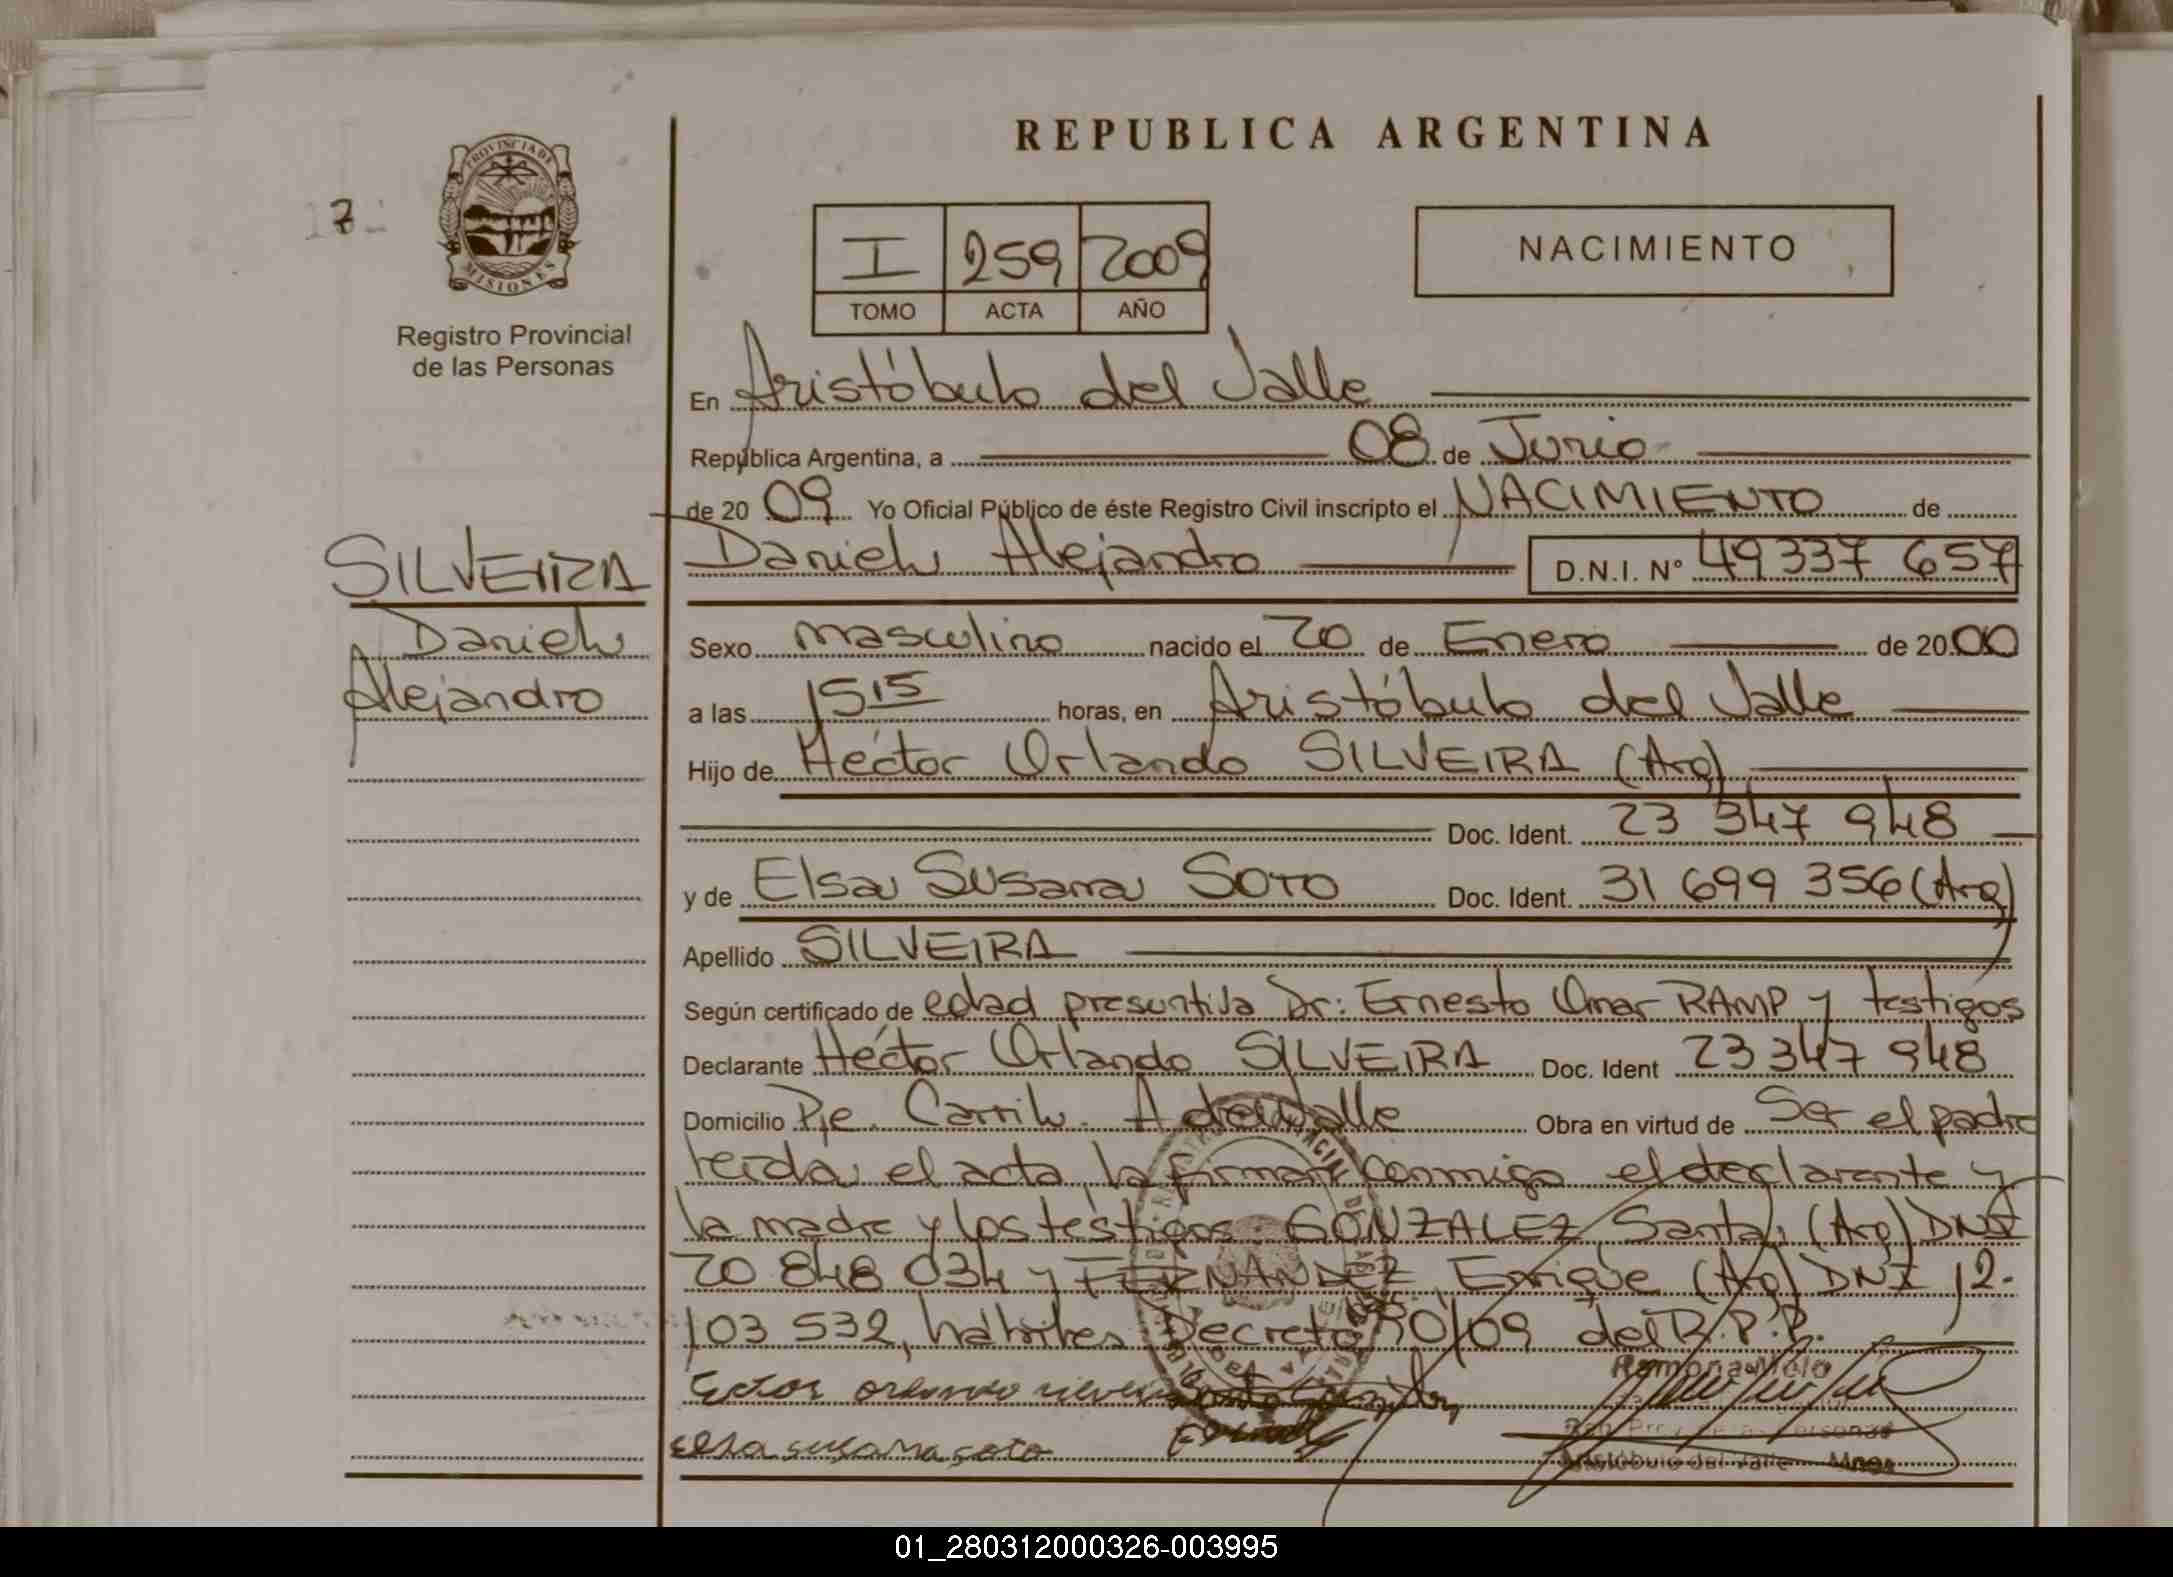 REPUBLICA ARGENTINA
PROVINCIA DE
MISIONES
Registro Provincial
de las Personas
I 259 2009
TOMO ACTA AÑO
NACIMIENTO
En Aristóbulo del Valle
República Argentina, a 08 de Junio
de 2009 Yo Oficial Público de éste Registro Civil inscripto el NACIMIENTO de
Daniel Alejandro D.N.I. N° 49337 657
SILVEIRA
Daniel
Alejandro
Sexo masculino nacido el 20 de Enero de 2000
a las 15 15 horas, en Aristóbulo del Valle
Hijo de Héctor Orlando SILVEIRA (Arg)
Doc. Ident. 23 347 948
y de Elsa Susana SOTO Doc. Ident. 31 699 356 (Arg)
Apellido SILVEIRA
Según certificado de edad presuntiva Dr: Ernesto Omar RAMP y testigos
Declarante Héctor Orlando SILVEIRA Doc. Ident 23 347 948
Domicilio Pje. Carrilo. A del Valle Obra en virtud de Ser el padre
leida el acta la firman conmigo el declarante y
la madre y los testigos: GONZALEZ, Santa, (Arg) DNI
20 848 034 y FERNANDEZ, Enrique (Arg) DNI 12.
103 532, hábiles Decreto 90/09 del R.P.P.
Ramona Melo
Ector orlando
elsa susana soto
Aristóbulo del Valle Mnes
01_280312000326-003995